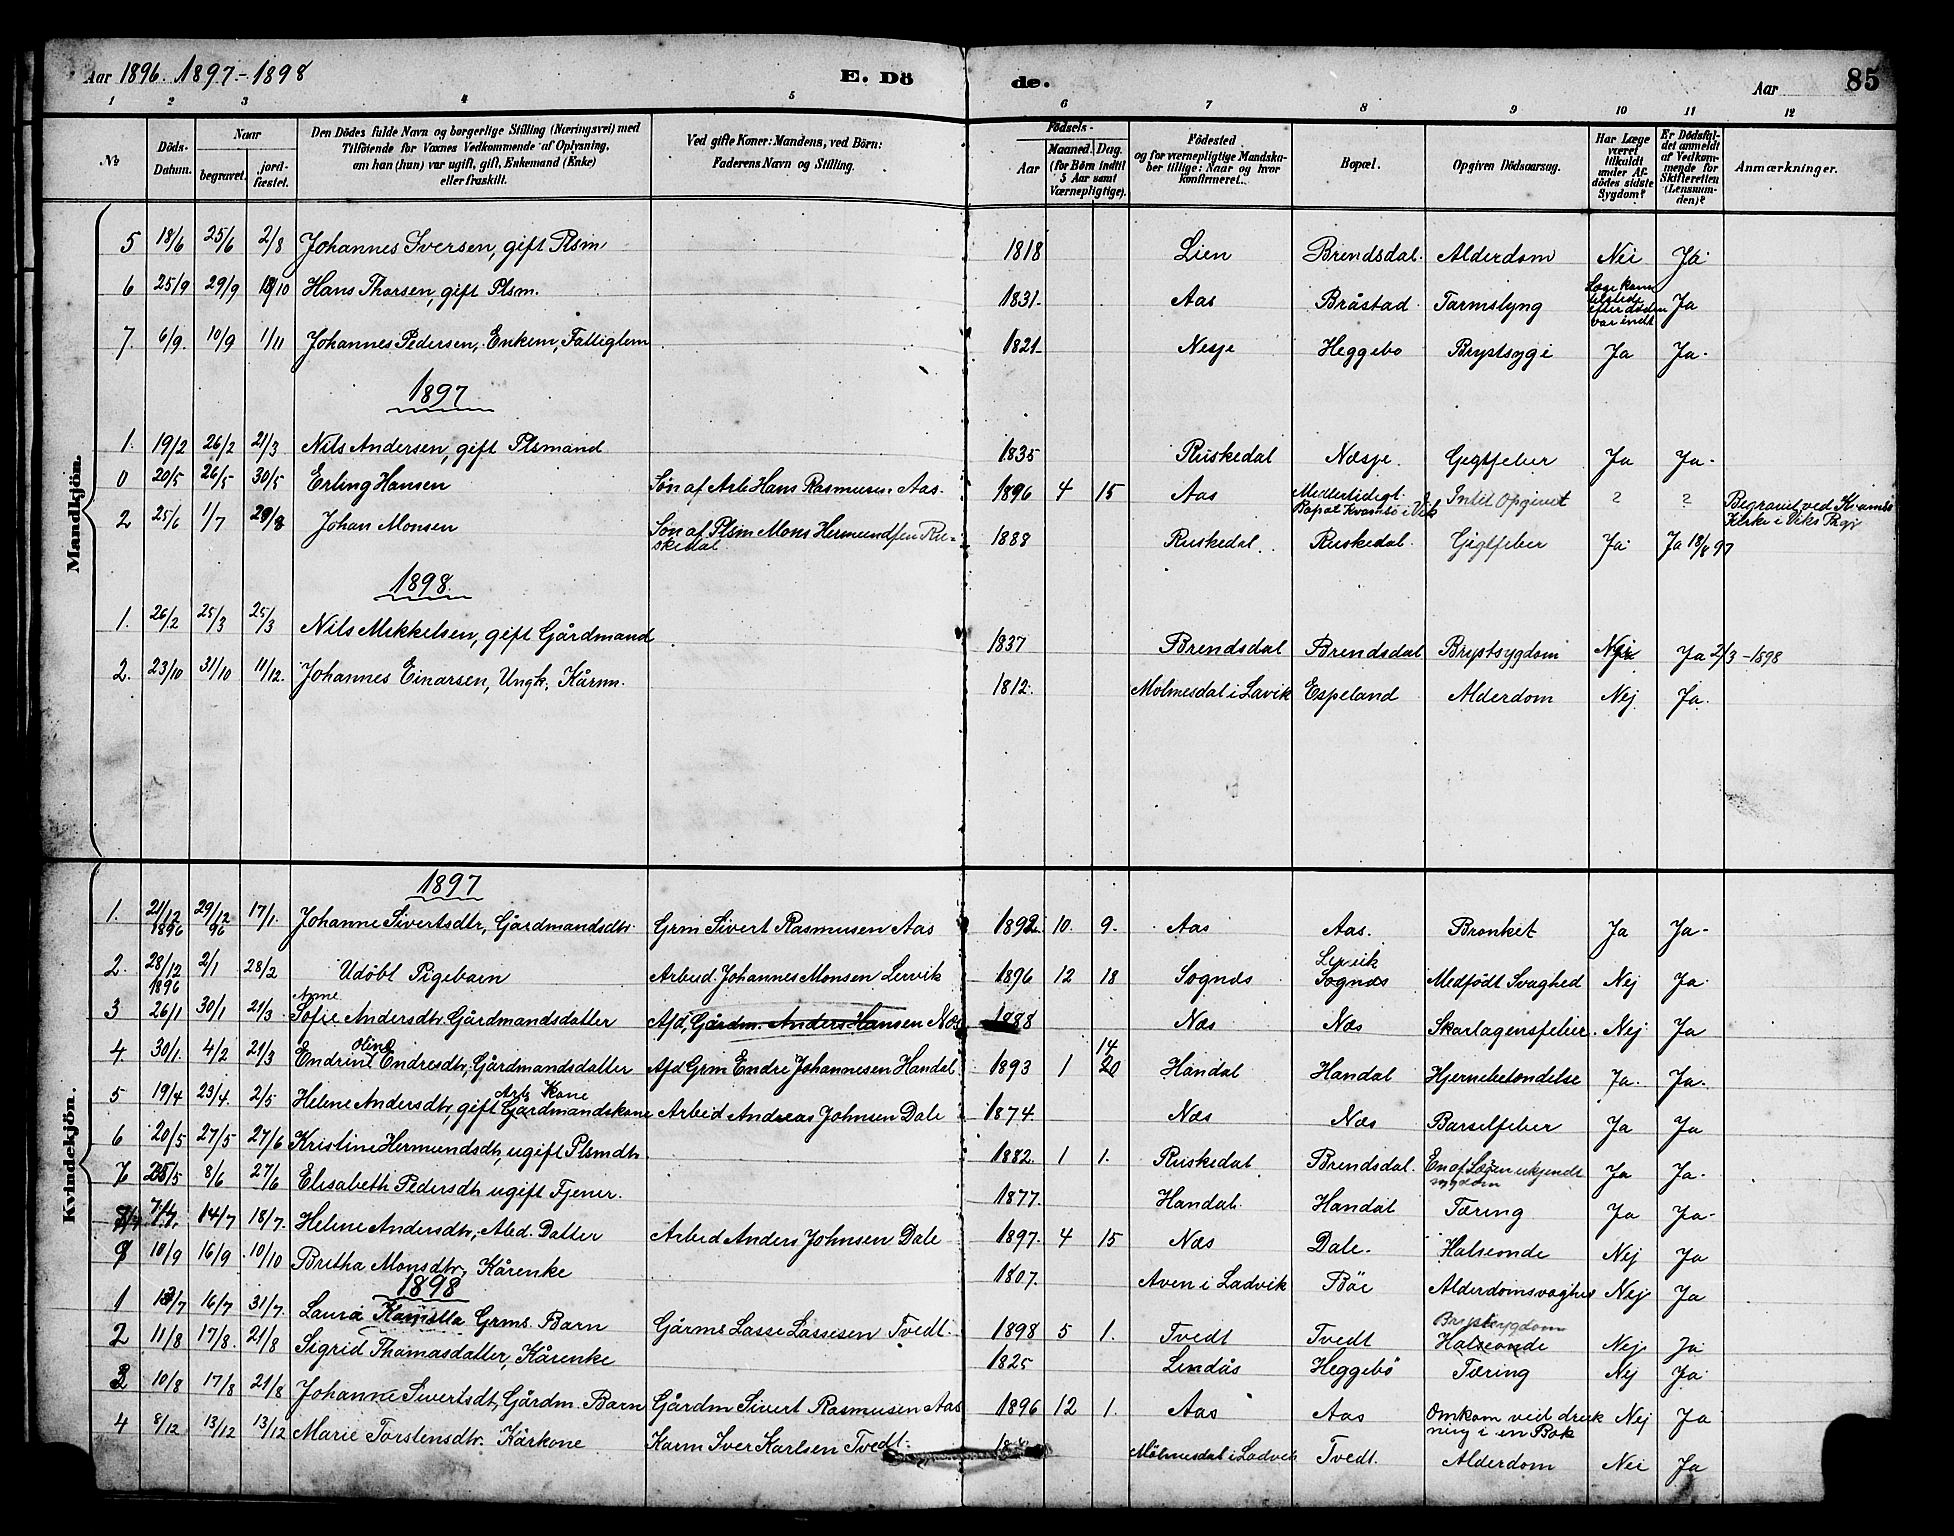 Aar 1896. 1897-1898 E. Dö de. Aar 85
1 2 3 4 5 6 7 8 9 10 11 12
No
Döds-Datum.
Naar
begravet.
jord-fæstet.
Den Dödes fulde Navn og borgerlige Stilling (Næringsvei) med
Tilföiende for Voxnes Vedkommende af Oplysning,
om han (hun) var ugift, gift, Enkemand (Enke)
eller fraskilt.
Ved gifte Koner: Mandens, ved Börn:
Faderens Navn og Stilling.
Födsels-
Aar
Maaned. Dag.
(for Börn indtil
5 Aar samt
Værnepligtige).
Födested
og for værnepligtige Mandska-
ber tillige: Naar og hvor
konfirmeret.
Bopæl.
Opgiven Dödsaarsag.
Har Læge
været
tilkaldt
under Af-
dödes sidste
Sygdom?
Er Dödsfal-
det anmeldt
af Vedkom-
mende for
Skifteretten
(Lensman-
den)?
Anmærkninger.
Mandkjön.
5 18/6 25/6 2/8 Johannes Iversen, gift Plsm 1818 Lien Brendsdal. Alderdom Nei Ja
6 25/9 29/9 18/10 Hans Thorsen, gift Plsm. 1831- Aas Bråstad Tarmslyng Læge kom tilstede efter døden var indt Ja
7. 6/9. 10/9 1/11 Johannes Pedersen, Enkem, Fattiglem 1821- Nesje Heggebo Brystsygi Ja Ja-
1897
1. 19/2 26/2 21/3 Nils Andersen, gift Plsmand 1835 Ruskedal Næsje. Gigtfeber Ja Ja-
0 20/5 26/5 30/5 Erling Hansen Søn af Arb Hans Rasmusen Aas. 1896 4 15 Aas Medlertidigt Bopæl Kvamsø i Vik Intet Opgivet ? ? Begravet ved Kvamsø Kirke i Viks Prgj
2 25/6 1/7 29/8 Johan Monsen Søn af Plsm Mons Hermundsen Ru-
skedal 1888 Ruskedal. Ruskedal. Gigtfeber Ja Ja 18/8 97
1898.
1. 26/2 25/3 25/3 Nils Mikkelsen, gift Gårdmand 1837 Brendsdal Brendsdal Brystsygdom Nej Ja 2/3-1898
2. 23/10 31/10 11/12. Johannes Einarsen, Ungk, Kårm. 1812. Molmesdal i Lavik Espeland Alderdom Nej Ja.
Kvindekjön.
1897
1. 21/12 1896 29/12 96 17/1. Johanne Sivertsdtr, Gårdmandsdtr. Grm Sivert Rasmusen Aas 1892 10. 9. Aas Aas. Bronket Ja Ja-
2. 28/12 1896 2/1 28/2 Udöbt Pigebarn Arbeid. Johannes Monsen Lervik 1896 12 18 Sognæs Lervik Sognæs Medfödt Svaghed Nej Ja
3 26/1 30/1 21/3. Anne Sofie Andersdtr Gårdmandsdatter Afd. Gårdm. Anders Hansen Næs 1888 Næs Næs Skarlagensfeber. Nej Ja
4 30/1. 4/2 21/3 Endrine Oline Endresdtr, Gårdmandsdatter Afd Grm Endre Johannesen Handal 1893 1 14 20 Handal Handal Hjernebetøndelse Ja. Ja.
5 19/4 23/4. 2/5 Helene Andersdtr, gift Arb. Kone Gårdmandskone Arbeid Andreas Johnsen Dale 1874 Næs Næs Barselfeber Ja Ja
6 20/5 27/5 27/6 Kristine Hermundsdtr, ugift Plsmdtr. 1882. 1 1. Ruskedal Brendsdal. En af Lægen ukjendt sygdom Ja Ja.
7 25/5 8/6 27/6 Elisabeth Pedersdtr ugift Tjener. 1877. Handal. Handal Tæring Ja Ja-
7/7. 14/7 18/7. Helene Andersdtr, Abd. Datter Arbeid Anders Johnsen Dale 1897. 4 15 Næs Dale. Halseonde Nej Ja
9 10/9 16/9 10/10 Britha Monsdtr, Kårenke 1807. Aven i Ladvik Böe Alderdomsvaghed Nej Ja
1898
1 13/7 16/7 31/7. Laura Kamilla Grms. Barn Gårms Lasse Lassesen Tvedt. 1898 5 1. Tvedt Tvedt Brystsygdom Halseonde Nej. Ja
2 11/8 17/8. 21/8 Sigrid Thomasdatter, Kårenke 1825 Lindås Heggebö Tæring Nej Ja
3 10/8 17/8 21/8 Johanne Sivertsdt, Gårdm. Barn Gårdm Sivert Rasmusen Aas 1896 12 1. Aas Aas Omkom ved druk
ning i en Bæk Nej Ja
4 8/12 13/12 13/12 Marie Torstensdtr. Kårkone Karm Iver Karlsen Tvedt. Mölmesdal i Ladvik Tvedt. Alderdom Nei Ja